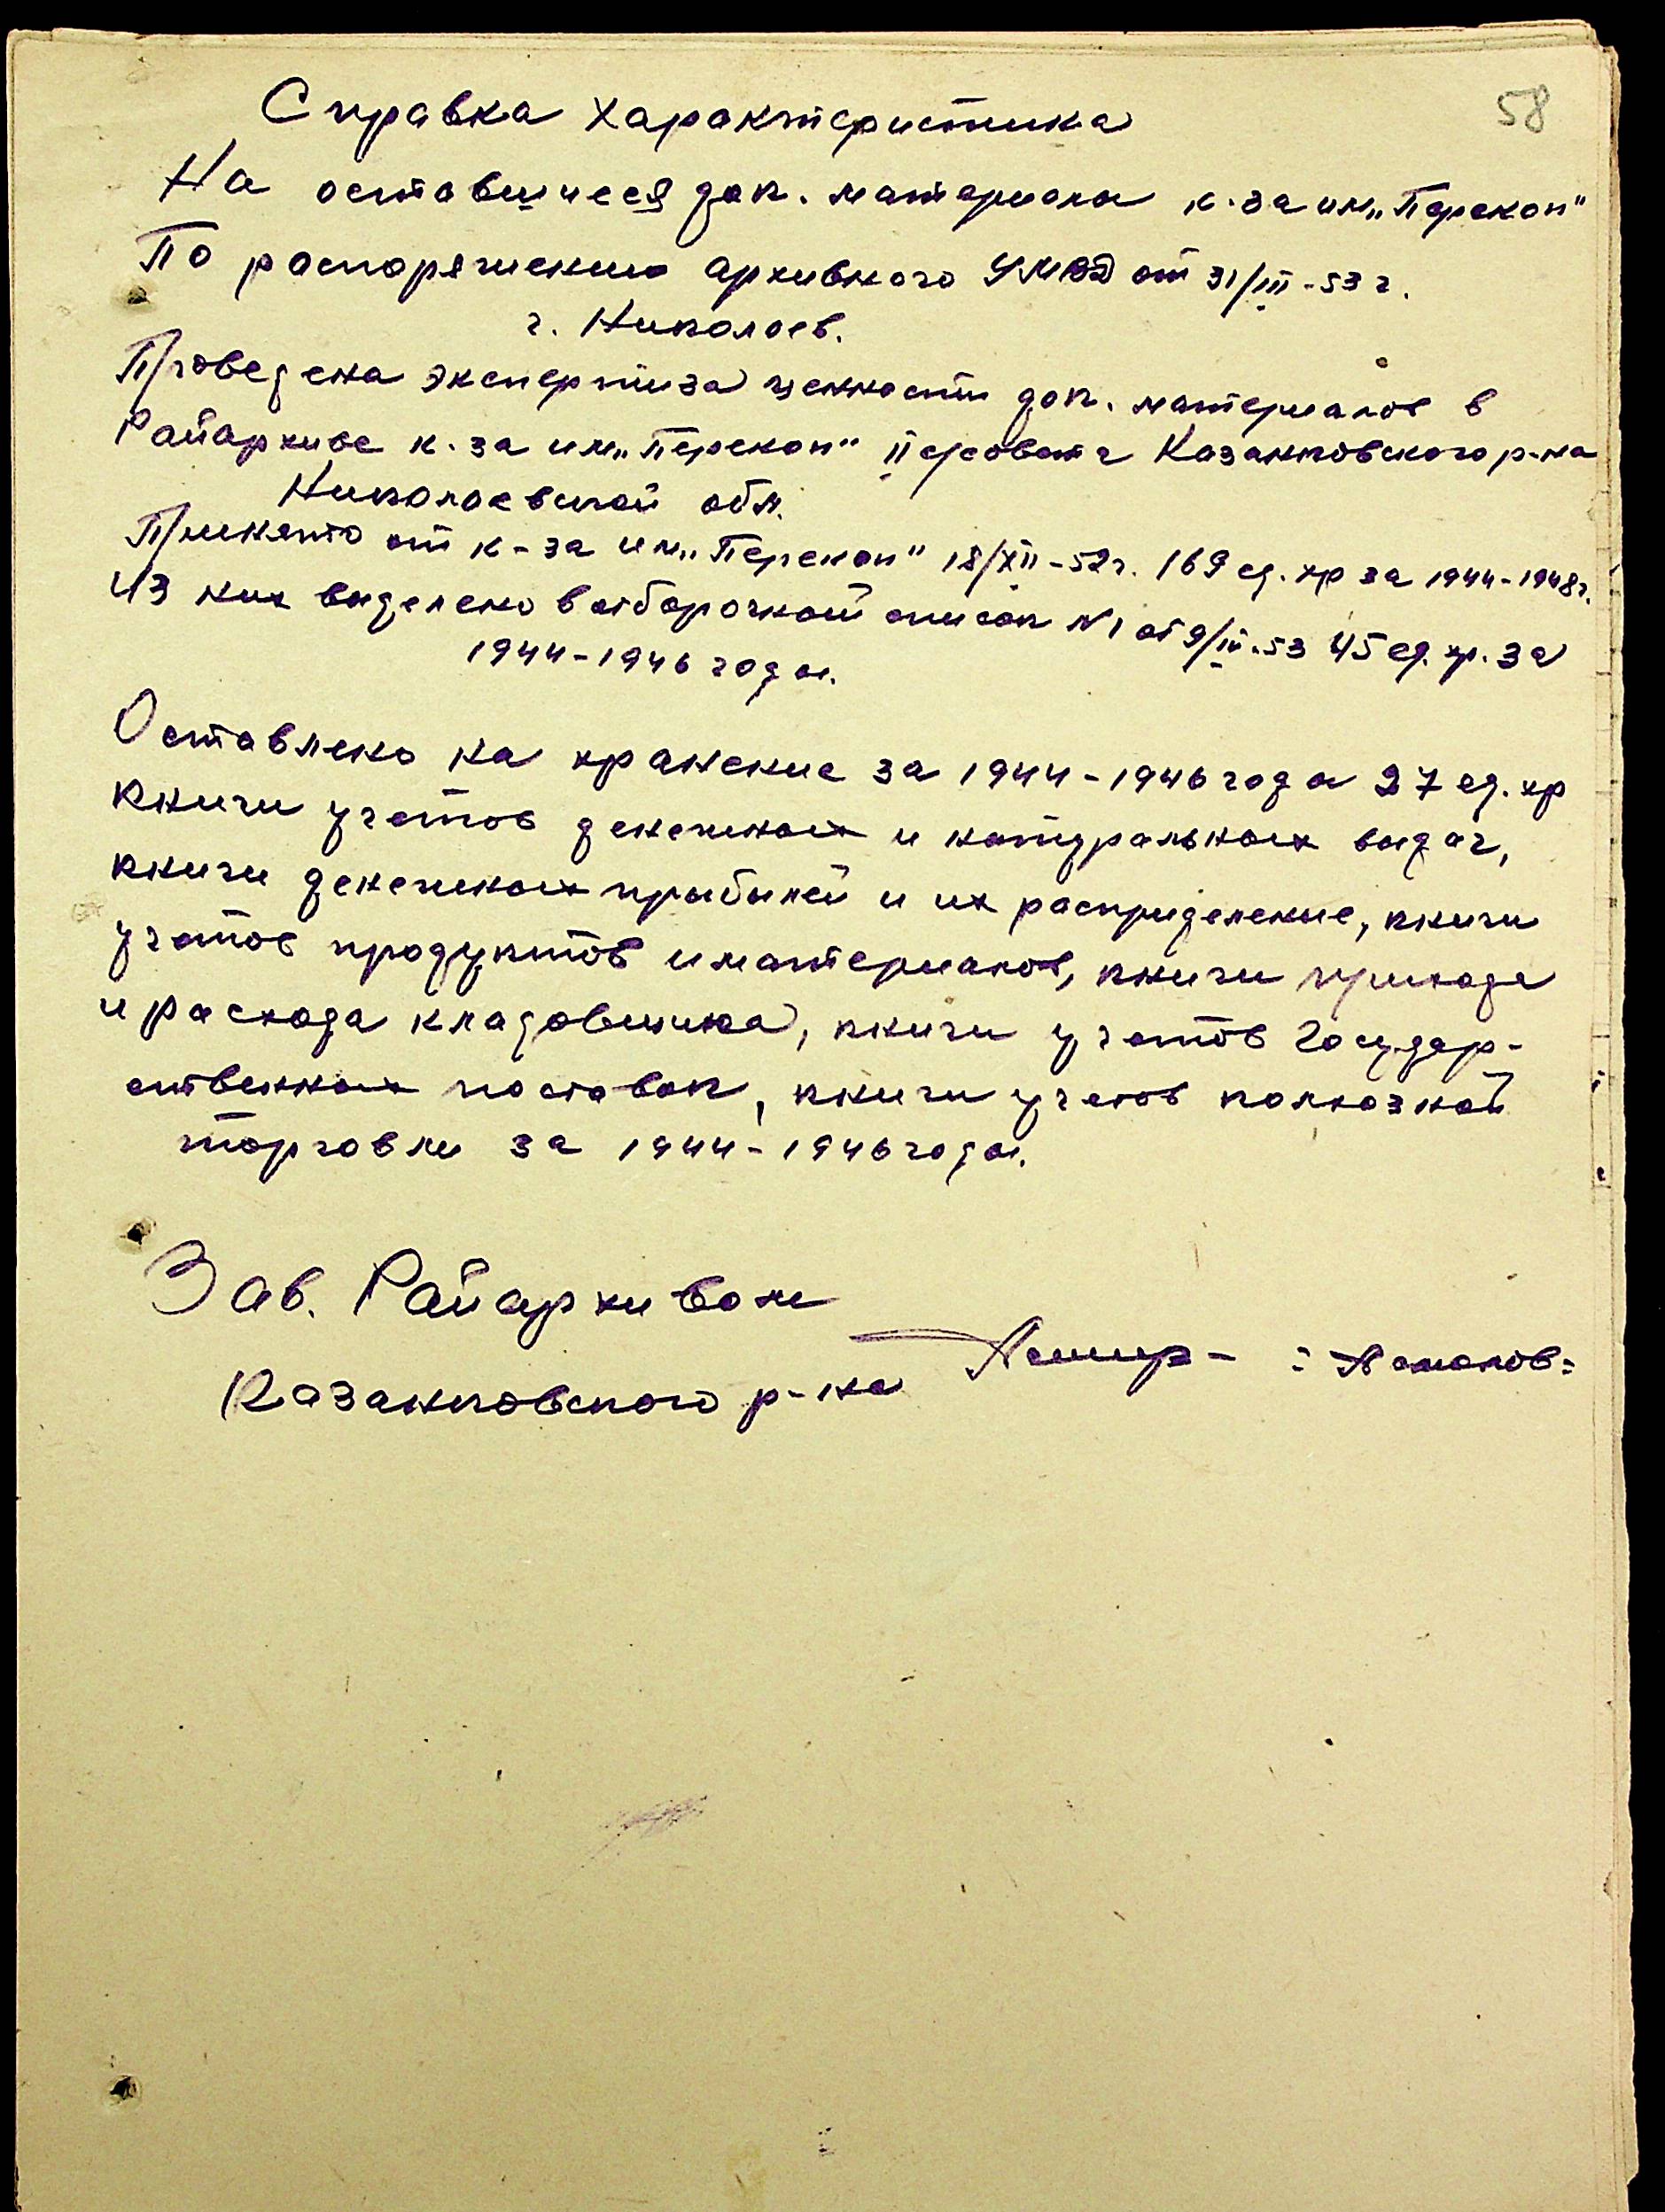 58
Справка характеристика
На оставшиеся док. материалы к-за им „Перекоп"
По распоряжению архивного УМВД от 31/III-53 г.
г. Николаев.
Проведена экспертиза ценности док. материалов в
Райархиве к-за им „Перекоп" II Казанковского р-на
Николаевской обл.
Принято от к-за им „Перекоп" 18/XII-52г. 169 ед. хр за 1944-1948г.
Из них выделено в отборочной описок №1 от 9/III-53 45 ед. хр. за
1944-1946 годы.
Оставлено на хранение за 1944-1946 года 27 ед. хр
Книги учетов денежных и натуральных выдач,
книги денежных прыбылей и их расприделение, книги
учетов продуктов и материалов, книги прихода
и расхода кладовщика, книги учетов государ-
ственных поставок, книги учетов колхозной
торговли за 1944-1946 годы.
Зав. Райархивом
Казанковского р-на